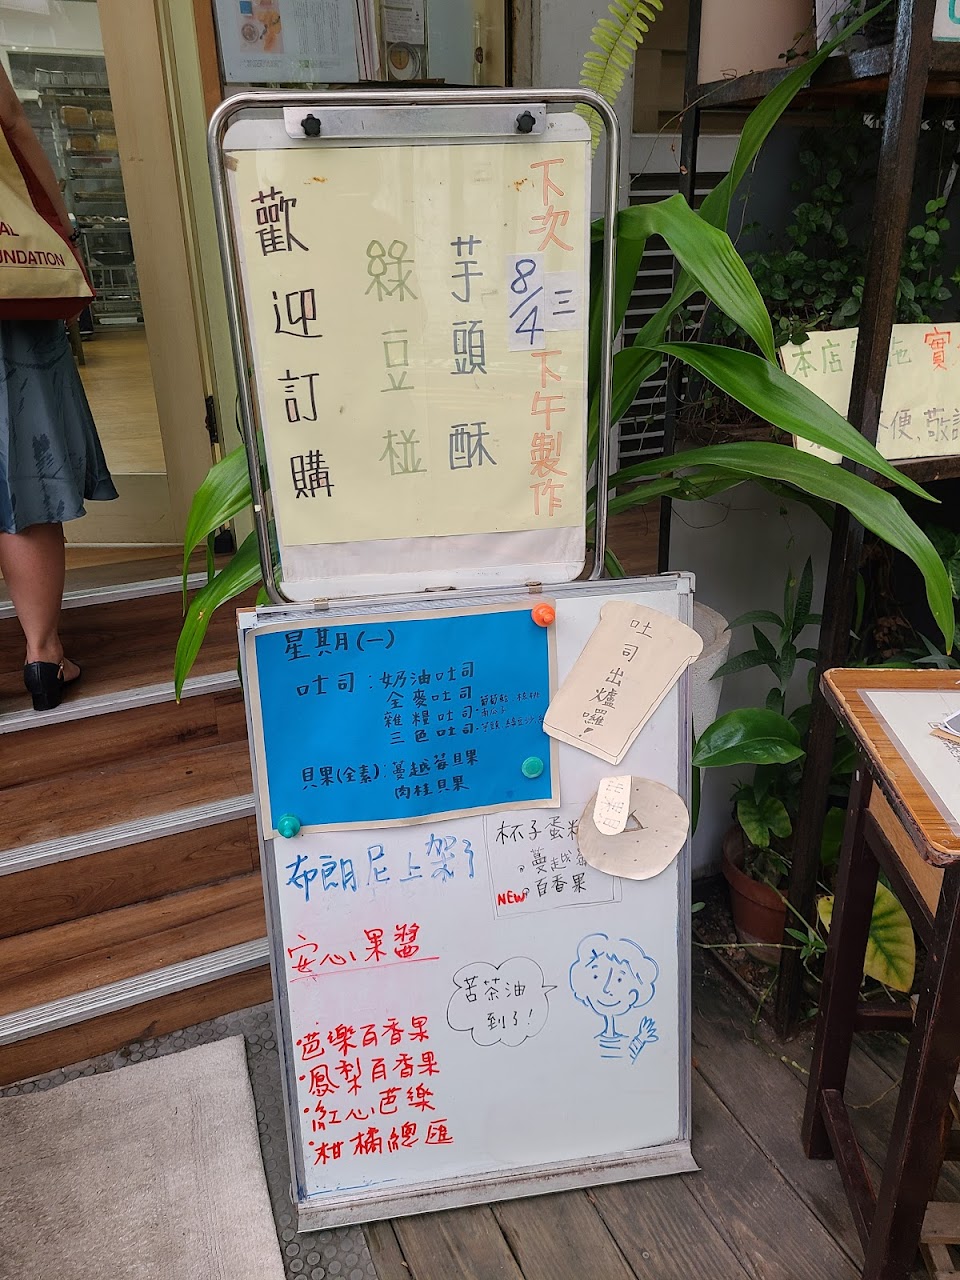 下次 8/4 三 下午製作
芋頭酥
綠豆椪
歡迎訂購
AL
UNDATION
本店
實
便,敬請
星期(一)
吐司:奶油吐司
全麥吐司
雜糧吐司-葡萄乾 核桃
三色吐司-
貝果(全素):蔓越莓貝果
肉桂貝果
吐司出爐囉!
杯子蛋糕
蔓越莓
NEW 百香果
布朗尼上架了
安心果醬
苦茶油
到了!
·芭樂百香果
·鳳梨百香果
·紅心芭樂
·柑橘總匯